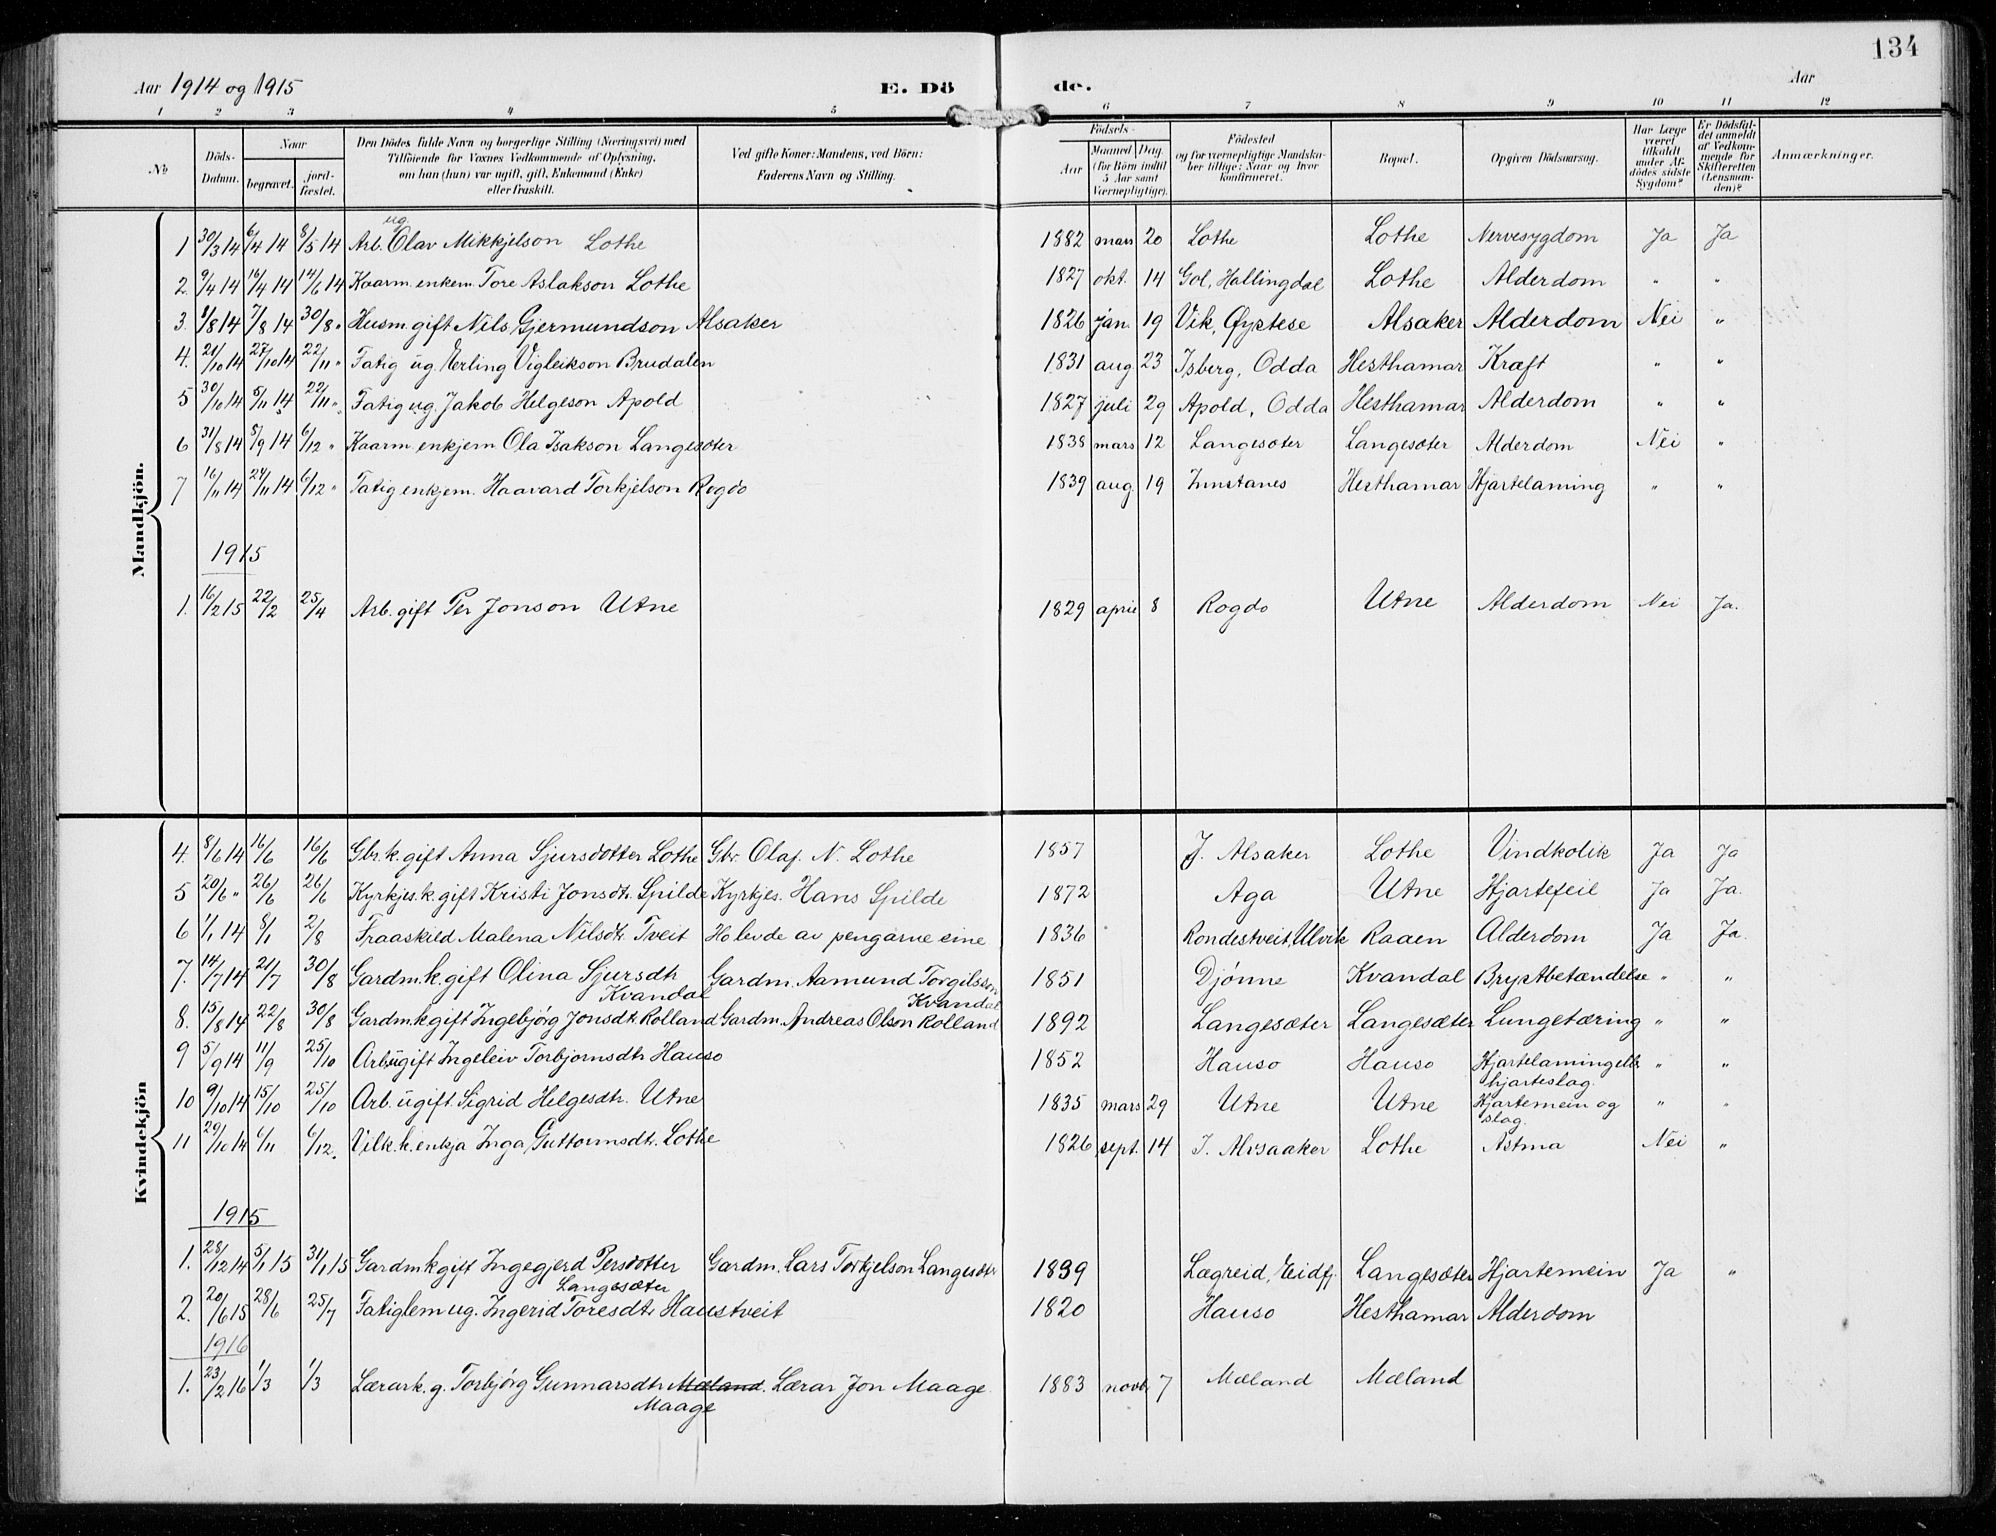 134
Aar 1914 og 1915 E. Dö de. Aar
1 2 3 4 5 6 7 8 9 10 11 12
No
Döds-Datum.
Naar
begravet.
jord-fæstet.
Den Dödes fulde Navn og borgerlige Stilling (Næringsvei) med
Tilföiende for Voxnes Vedkommende af Oplysning,
om han (hun) var ugift, gift, Enkemand (Enke)
eller fraskilt.
Ved gifte Koner: Mandens, ved Börn:
Faderens Navn og Stilling.
Födsels-
Aar
Maaned
Dag.
(for Börn indtil
5 Aar samt
Værnepligtige).
Födested
og for værnepligtige Mandskaber tillige: Naar og hvor
konfirmeret.
Bopæl.
Opgiven Dödsaarsag.
Har Læge været tilkaldt under Afdödes sidste Sygdom?
Er Dödsfaldet anmeldt af Vedkommende for Skifteretten (Lensmanden)?
Anmærkninger.
Mandkjön.
ug.
1 30/3 14 6/4 14 8/5 14 Arb. Olav Mikkjelson Lothe 1882 mars 20 Lothe Lothe Nervesygdom Ja Ja
2. 9/4 14 16/4 14 14/6 14 Kaarm. enkem. Tore Aslakson Lothe 1827 okt. 14 Gol, Hallingdal Lothe Alderdom " "
3. 1/8 14 7/8 14 30/8 " Husm. gift Nils Gjermundson Alsaker 1826 jan. 19 Vik, Øystese Alsaker Alderdom Nei "
4. 21/10 14 27/10 14 22/11 " Fatig ug. Erling Vigleikson Brudalen 1831 aug 23 Isberg, Odda Hesthamar Kræft " "
5 30/10 14 5/11 14 22/11 " Fatig ug. Jakob Helgeson Apold 1827 juli 29 Apold, Odda Hesthamar Alderdom " "
6 31/8 14 8/9 14 6/12 " Kaarm. enkjem. Ola Isakson Langesæter 1838 mars 12 Langesæter Langesæter Alderdom Nei "
7 16/11 14 24/11 14 6/12 " Fatig enkjem. Haavard Torkjelson Rogdo 1839 aug 19 Innstanes Hesthamar Hjartelaming " "
1915
1. 16/2 15 22/2 25/4 Arb. gift Per Jonson Utne 1829 april 8 Rogdo Utne Alderdom Nei Ja.
Kvindekjön
4. 8/6 14 16/6 16/6 Gbr. k. gift Anna Sjursdotter Lothe Gbr. Olaf N. Lothe 1857 J. Alsaker Lothe Vindkolik Ja Ja
5 20/6 " 26/6 26/6 Kyrkjes. k. gift Kristi Jonsdtr. Spilde Kyrkjes. Hans Spilde 1872 Aga Utne Hjartefeil Ja Ja.
6 1/1 14 8/1 2/8 Fraaskild Malena Nilsdtr. Tveit Ho levde av pengarne sine 1836 Rondestveit, Ulvik Raaen Alderdom Ja Ja.
7. 14/7 14 21/7 30/8 Gardm. k. gift Olina Sjursdtr Gardm. Aamund Torgilsson 1851 Djønne Kvandal Brystbetændelse " "
Kvandal Kvandal
8. 15/8 14 22/8 30/8 Gardm. k gift Ingebjørg Jonsdtr. Rolland Gardm. Andreas Olson Rolland 1892 Langesæter Langesæter Lungetæring " "
9 5/9 14 11/9 25/10 Arb. ugift Ingeleiv Torbjornsdtr Hauso 1852 Hauso Hauso Hjartelaming ell.
hjarteslag. " "
10 9/10 14 15/10 25/10 Arb. ugift. Sigrid Helgesdtr. Utne 1835 mars 29 Utne Utne Hjartemein og
slag. " "
11 29/10 14 6/11 6/12. Vilk. k. enkja Inga Guttormsdtr. Lothe 1826 sept. 14 I. Alvsaaker Lothe Astma Nei "
1915
1. 28/12 14 5/1 15 31/1 15 Gardm k gift Ingegjerd Persdotter Gardm. Lars Torkjelson Langesætr 1839 Lægreid, Eidfj. Langesæter Hjartemein Ja "
Langesæter
2. 20/6 15 28/6 25/7 Fatiglem ug. Ingerid Toresdtr. Haustveit 1820 Hauso Hesthamar Alderdom
1916
1. 23/2 16 1/3 1/3 Lærark. g. Torbjørg Gunnarsdtr Mæland. Lærar Jon Maage 1883 novb. 7 Mæland Mæland
Maage